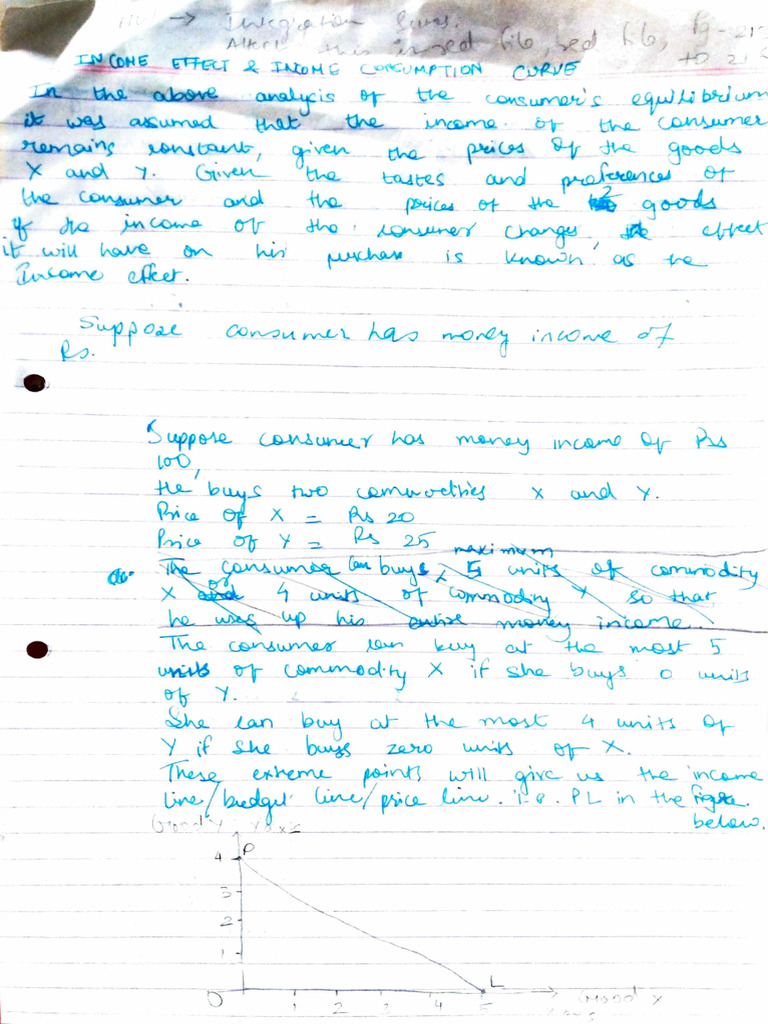 → Integration lines.
Attach this insed fib, sed fib, Pg - 213
to 215
INCOME EFFECT & INCOME CONSUMPTION CURVE
In the above analysis of the consumer's equilibrium
it was assumed that the income of the consumer
remains constant, given the prices of the goods
X and Y. Given the tastes and preferences of
the consumer and the prices of the 2 goods
if the income of the consumer changes, the effect
it will have on his purchase is known as the
Income effect.
Suppose consumer has money income of
Rs.
Suppose consumer has money income of Rs
100,
He buys two commodities X and Y.
Price of X = Rs 20
Price of Y = Rs 25
maximum
The consumer can buys 5 units of commodity
X or 4 units of commodity Y so that
he uses up his entire money income.
The consumer can buy at the most 5
units of commodity X if she buys 0 units
of Y.
She can buy at the most 4 units of
Y if she buys zero units of X.
These extreme points will give us the income
line/budget line/price line. i.e. PL in the figure
below.
Good Y
4 P
3
2
1
O 1 2 3 4 5 L Good X